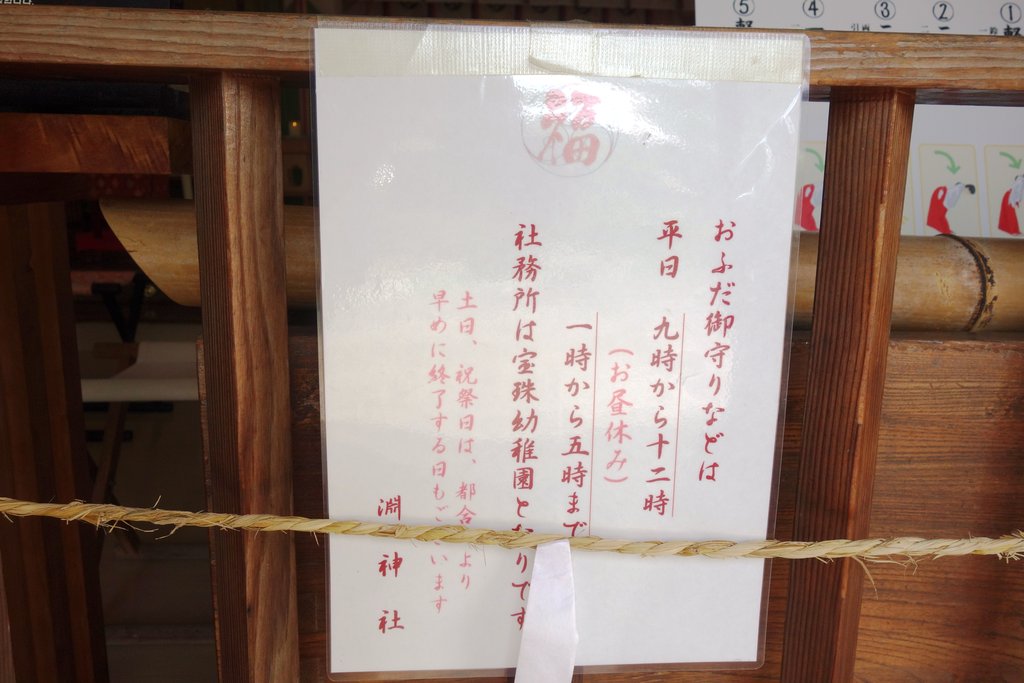 福
おふだ御守りなどは
平日 九時から十二時
(お昼休み)
一時から五時まで
社務所は宝珠幼稚園となりです
土日、祝祭日は、都合により
早めに終了する日もございます
淵神社
① ② ③ ④ ⑤